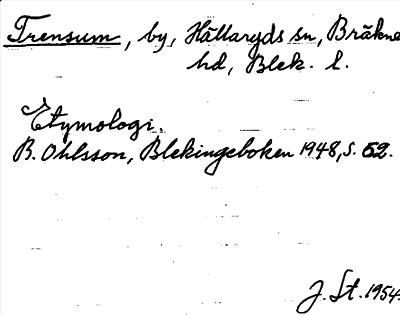 Trensum, by, Hällaryds sn, Bräkne
hd, Blek. l.
Etymologi.
B. Ohlsson, Blekingeboken 1948, s. 52.
J. St. 1954.